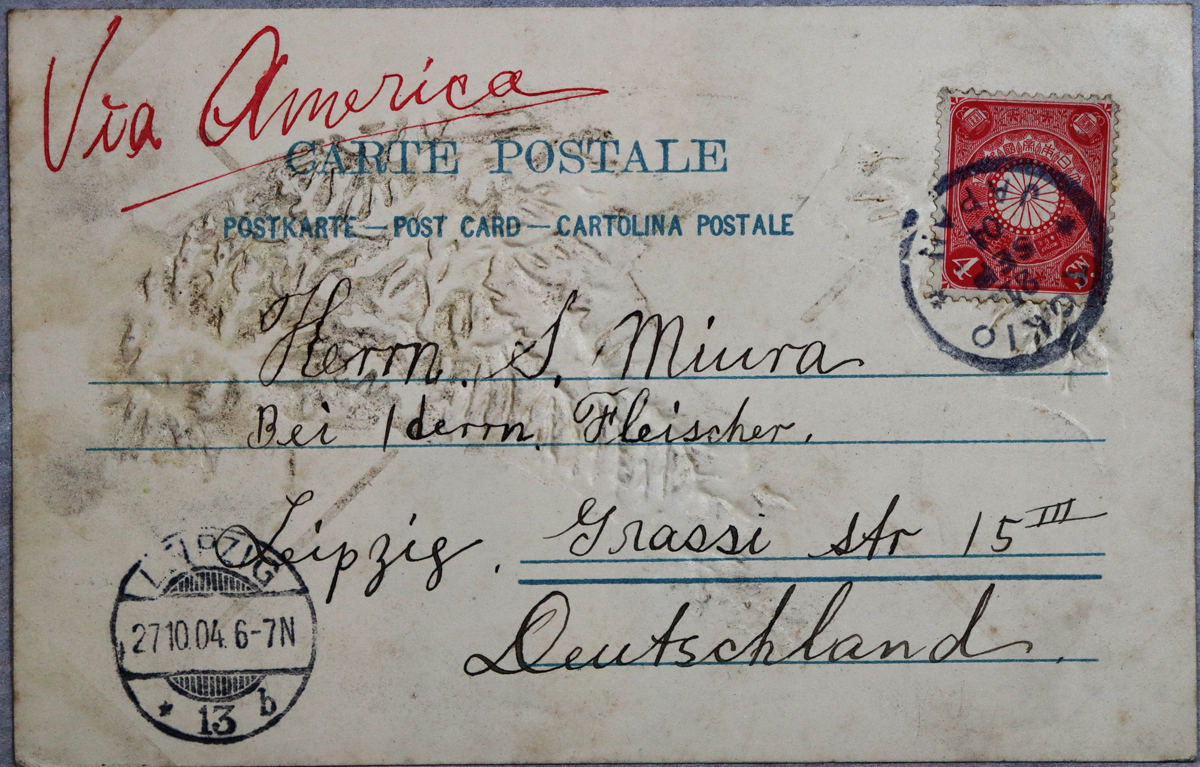 Via America
CARTE POSTALE
POSTKARTE — POST CARD — CARTOLINA POSTALE
4
Herrn. S. Miura
Bei Herrn. Fleischer.
Leipzig. Grassi str 15 III
Deutschland.
LEIPZIG
27.10.04. 6-7N
* 13 b